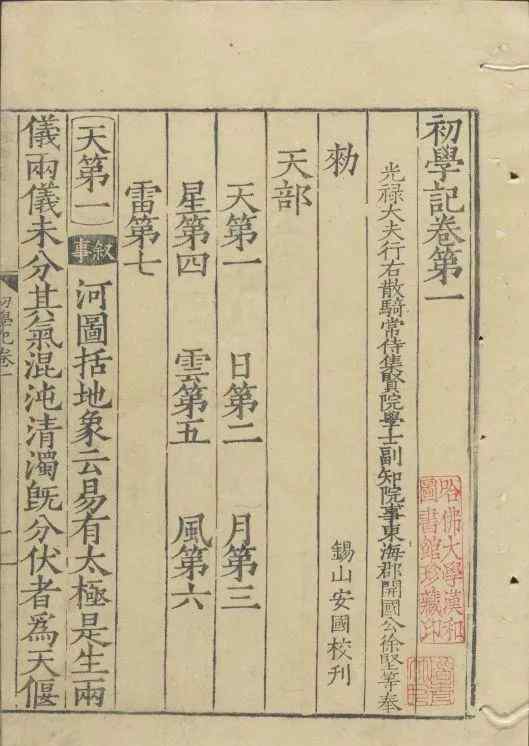 初學記卷第一
光祿大夫行右散騎常侍集賢院學士副知院事東海郡開國公徐堅等奉
勑
錫山安國校刊
天部
天第一 日第二 月第三
星第四 雲第五 風第六
雷第七
天第一 敘事 河圖括地象云易有太極是生兩
儀兩儀未分其氣混沌清濁旣分伏者爲天偃
初學記卷一
哈佛大學漢和圖書館珍藏印